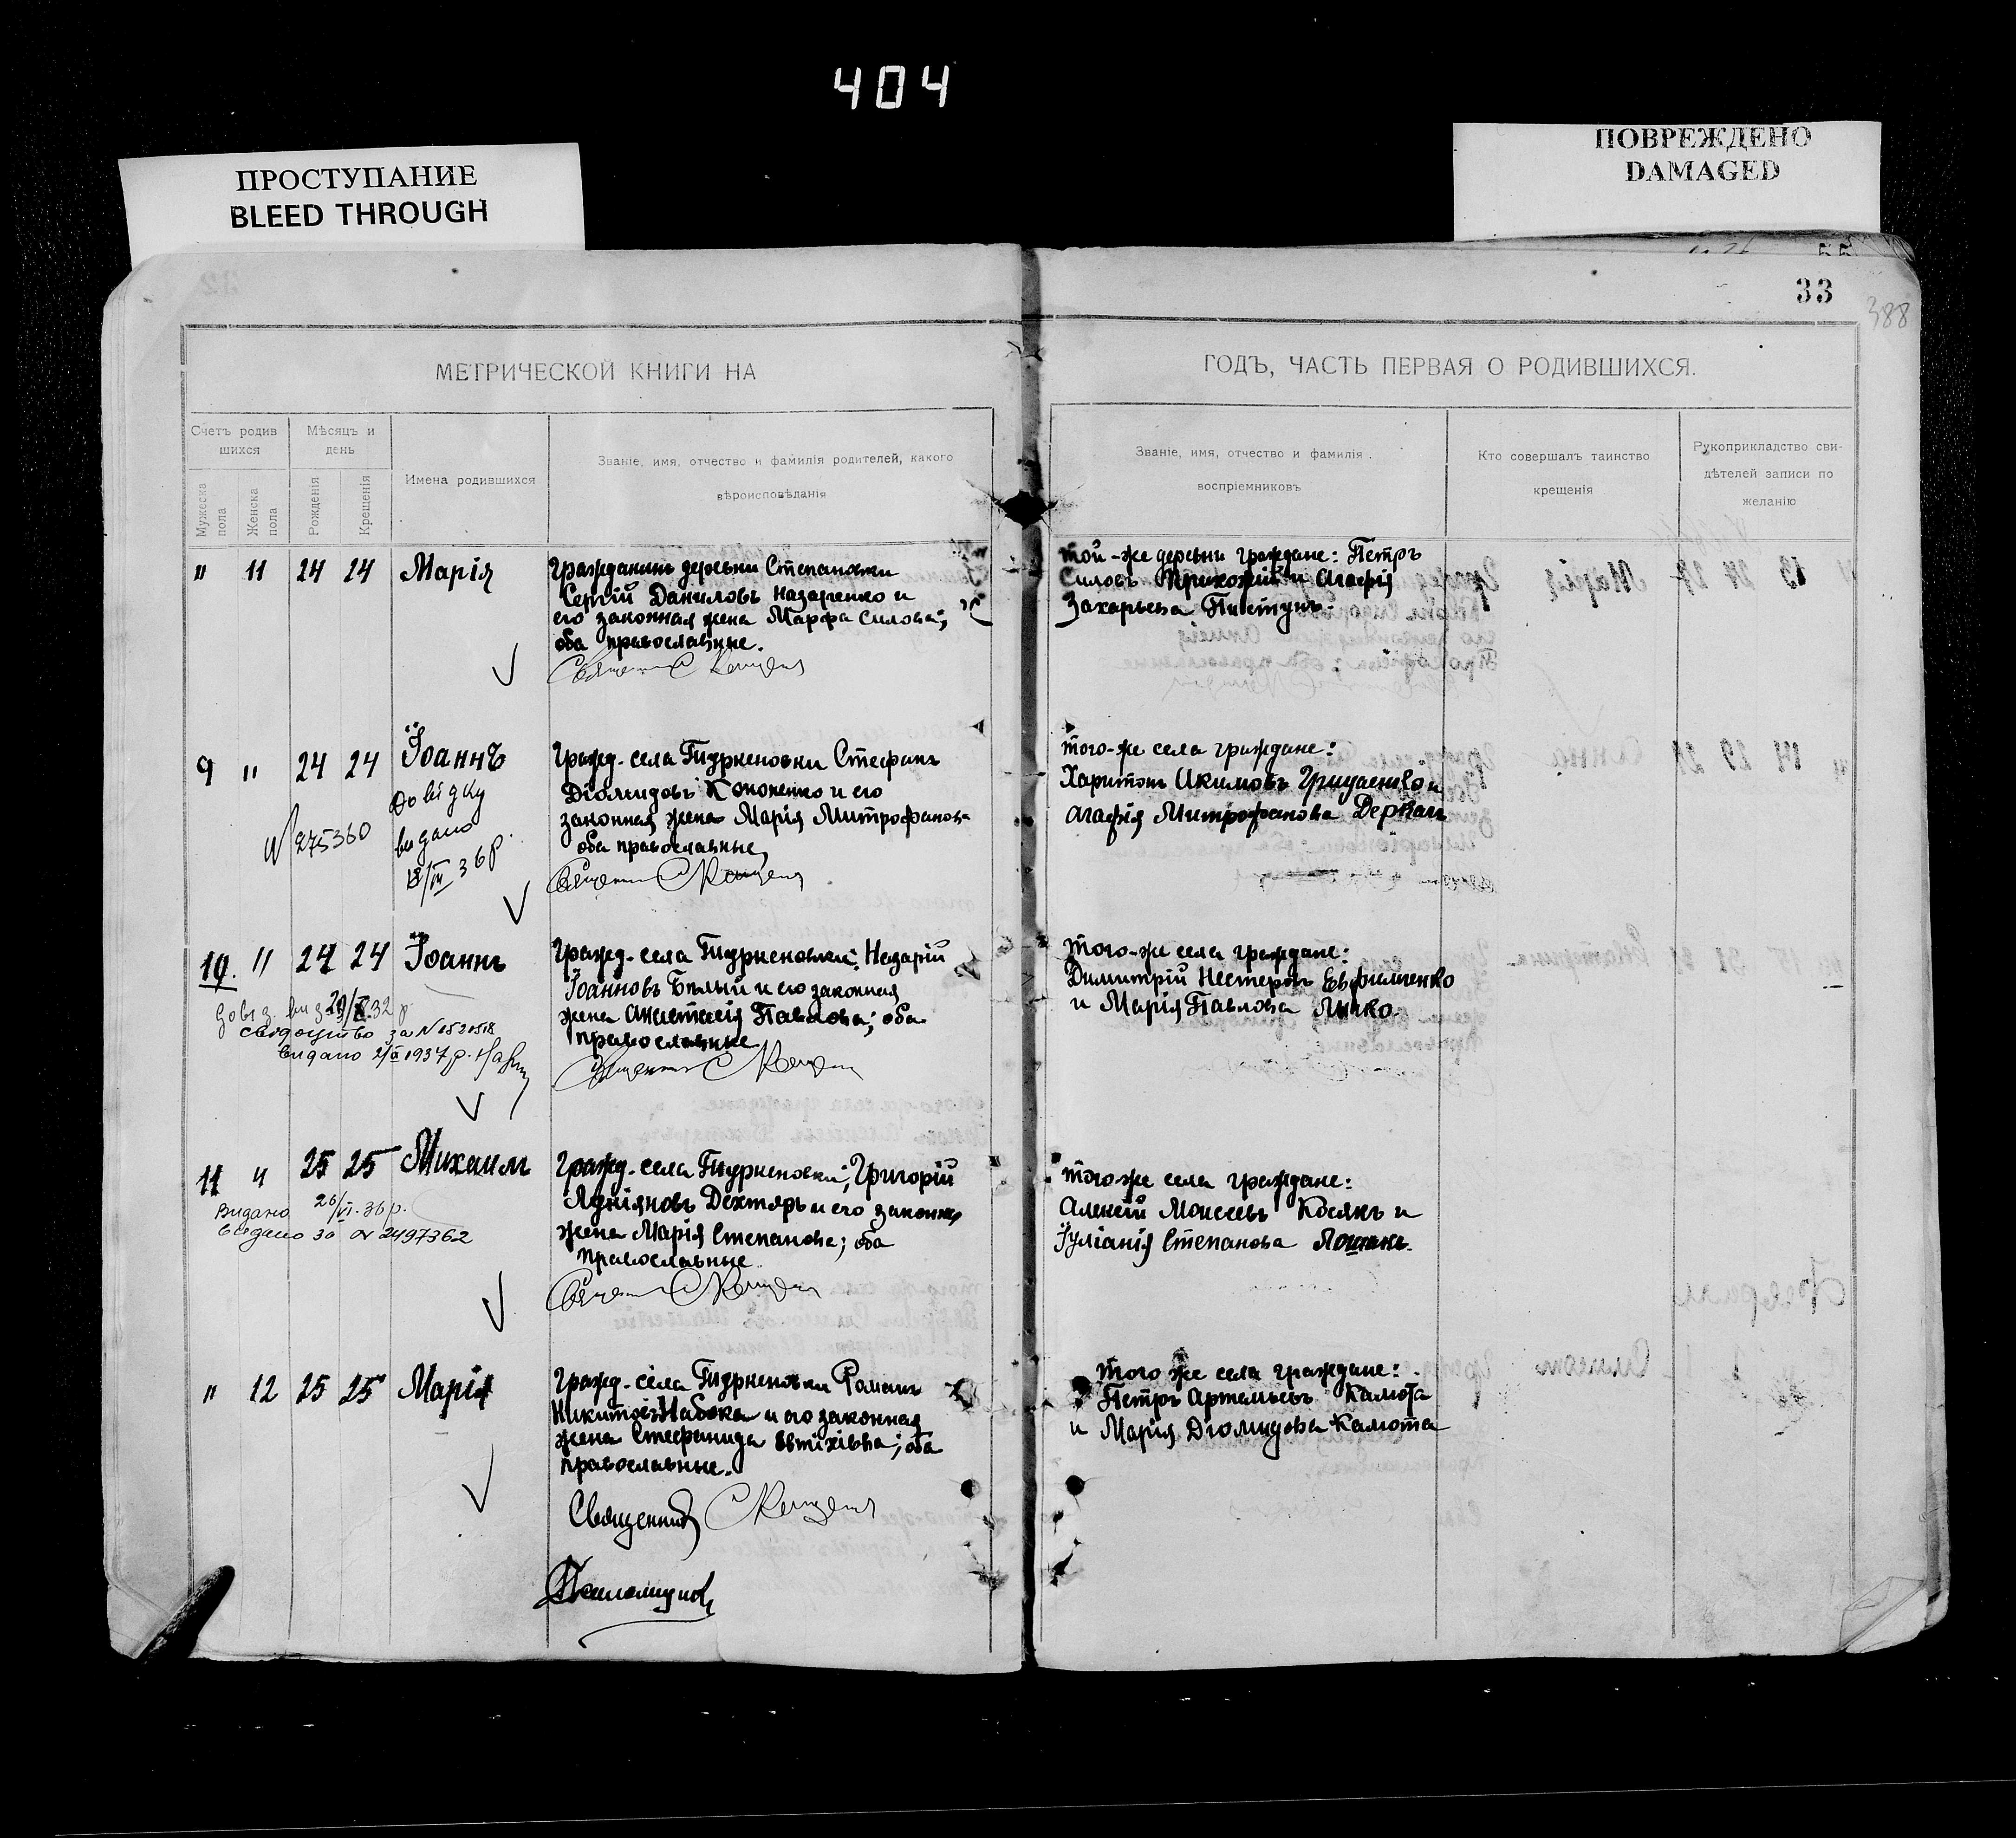 404
ПРОСТУПАНИЕ
BLEED THROUGH
ПОВРЕЖДЕНО
DAMAGED
55
33
388
МЕТРИЧЕСКОЙ КНИГИ НА
ГОДЪ, ЧАСТЬ ПЕРВАЯ О РОДИВШИХСЯ.
Счетъ родив
шихся
Мѣсяцъ и
день
Мужеска
пола
Женска
пола
Рожденія
Крещенія
Имена родившихся
Званіе, имя, отчество и фамилія родителей, какого
вѣроисповѣданія
Званіе, имя, отчество и фамилія
воспріемниковъ
Кто совершалъ таинство
крещенія
Рукоприкладство сви-
дѣтелей записи по
желанію
" 11 24 24 Марія
Гражданинъ деревни Степановки
Сергій Даниловъ Назаренко и
его законная жена Марфа Силова;
оба православные.
той-же деревни граждане: Петръ
Силовъ Прихожій и Агафія
Захарьева Пистунъ.
9 " 24 24 Іоаннъ
довідку
видано
18/III 36 р.
№ 275360
Гражд. села Стефанъ
Діомидовъ Кононенко и его
законная жена Марія Митрофанов
оба православные
того-же села граждане:
Харитонъ Акимовъ Гриценко и
Агафія Митрофанова Деркачъ
10. " 24 24 Іоаннъ
32 р
свідоцтво за N 0520518
видано 2/IX 1937 р.
Гражд. села Назарій
Іоанновъ Бѣлый и его законная
жена Анастасія Павлова; оба
православные
того-же села граждане:
Димитрій Нестеровъ Евфименко
и Марія Павлова
11 " 25 25 Михаилъ
Видано 26/VI. 36 р.
видано за № 2497362
Гражд. села Григорій
Дехтярь и его законная
жена Марія Степанова; оба
православные
того-же села граждане:
Алексій Моисеевъ Косякъ и
Іуліанія Степанова Лошакъ.
" 12 25 25 Марія
Гражд. села Романъ
Никитовъ Набока и его законная
жена Стефанида Евтихіева; оба
православные.
Священникъ
Псаломщикъ
того же села граждане:
Петръ Артемьевъ Калюта
и Марія Діомидова Калюта